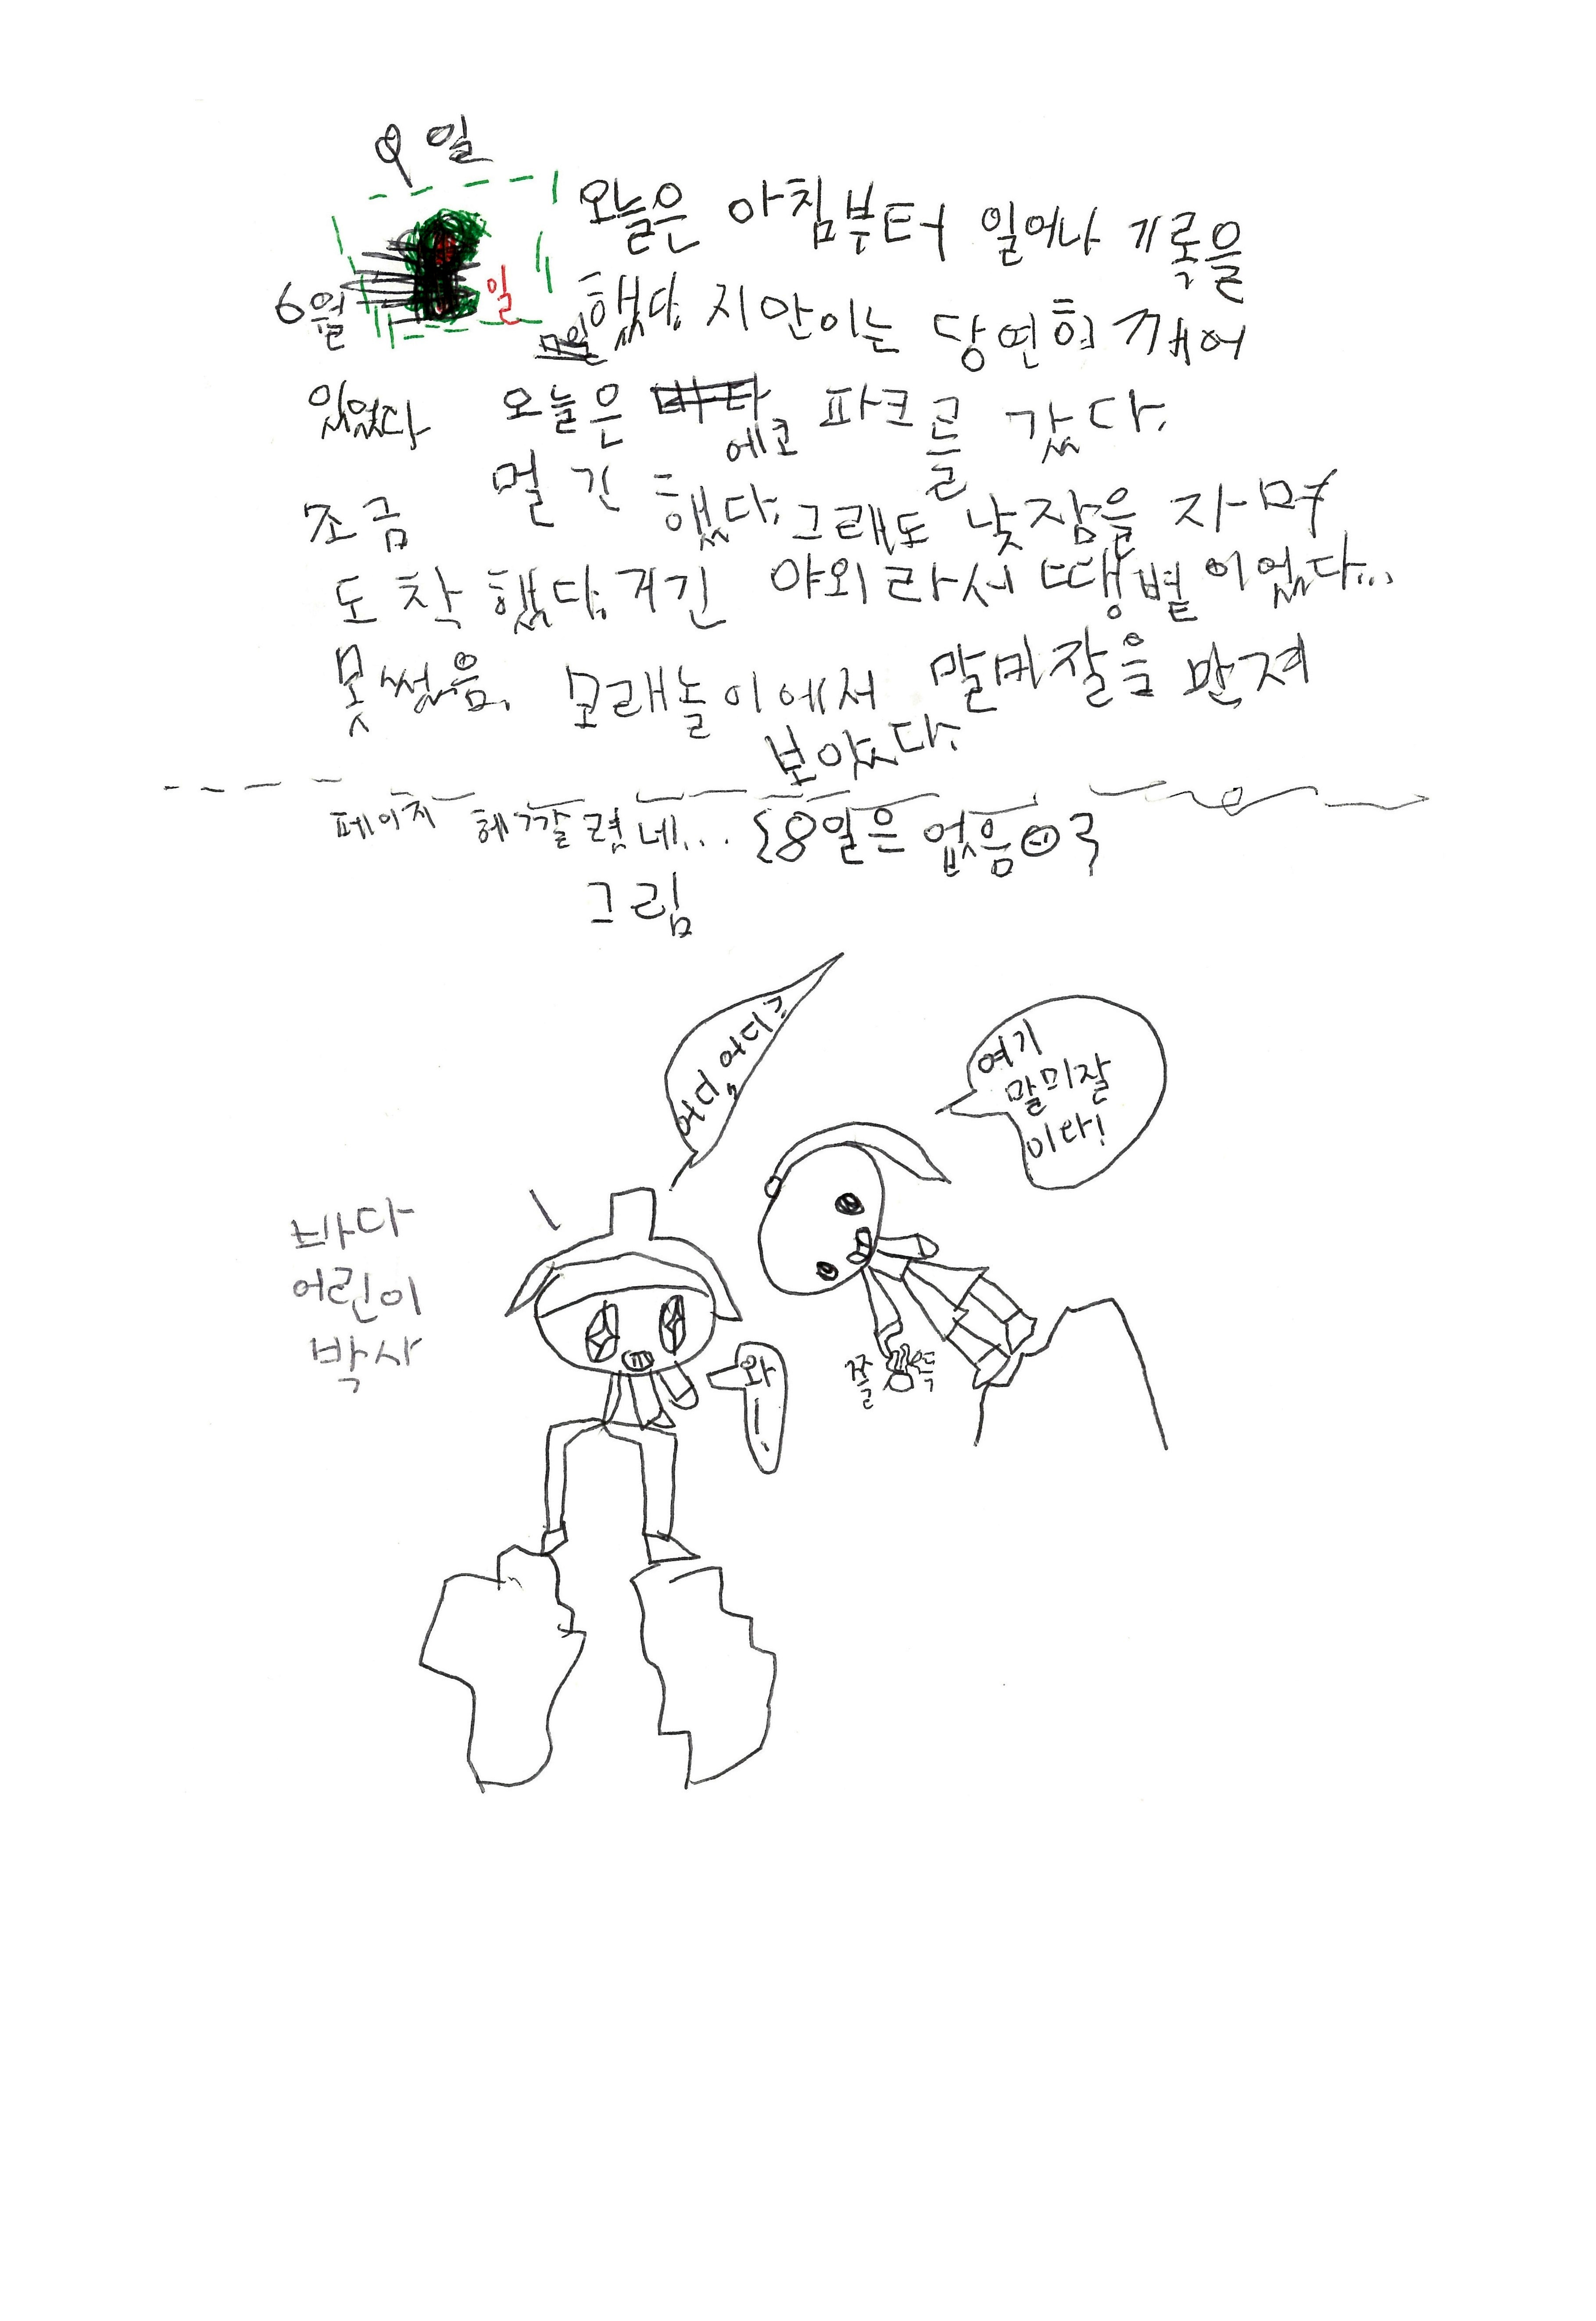 9일
6월 일
오늘은 아침부터 일어나 기록을
했다. 지안이는 당연히 깨어
있었다 오늘은 에코 파크를 갔다.
조금 멀긴 했다. 그래도 낮잠을 자며
도착했다. 거긴 야외라서 땡볕이었다...
못썼음. 모래놀이에서 말미잘을 만져
보았다.
페이지 헤깔렸네... {8일은 없음}
그림
어디, 어디?
여기
말미잘
이다!
바다
어린이
박사
와
쭐